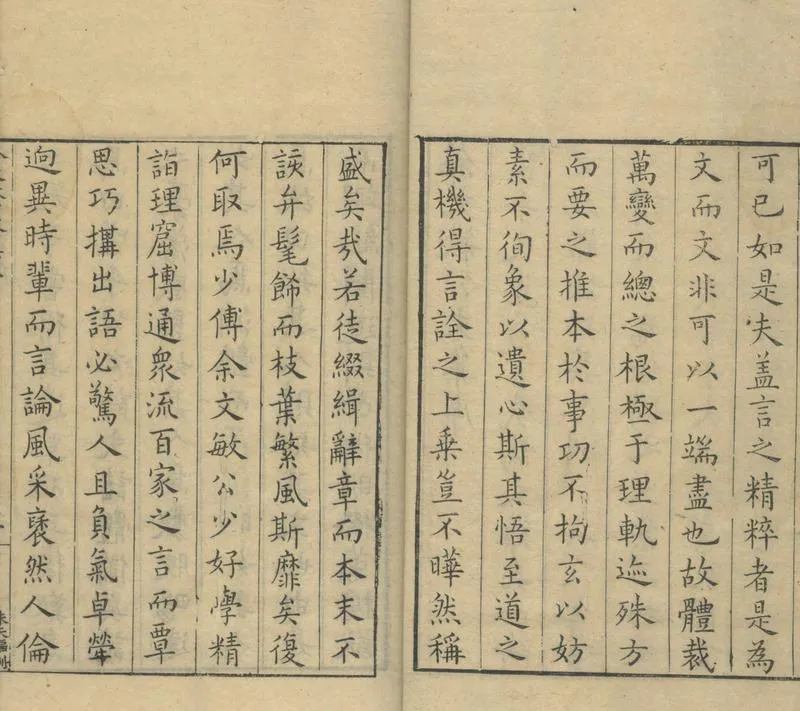 可已如是夫盖言之精粹者是為
文而文非可以一端盡也故體裁
萬變而總之根極于理軌迹殊方
而要之推本於事功不拘玄以妨
素不徇象以遺心斯其悟至道之
真機得言詮之上乗豈不曄然稱
盛矣哉若徒綴緝辭章而本末不
該弁髦飾而枝葉繁風斯靡矣復
何取焉少傅余文敏公少好學精
詣理窟博通衆流百家之言而覃
思巧搆出語必驚人且負氣卓犖
逈異時輩而言論風采襃然人倫